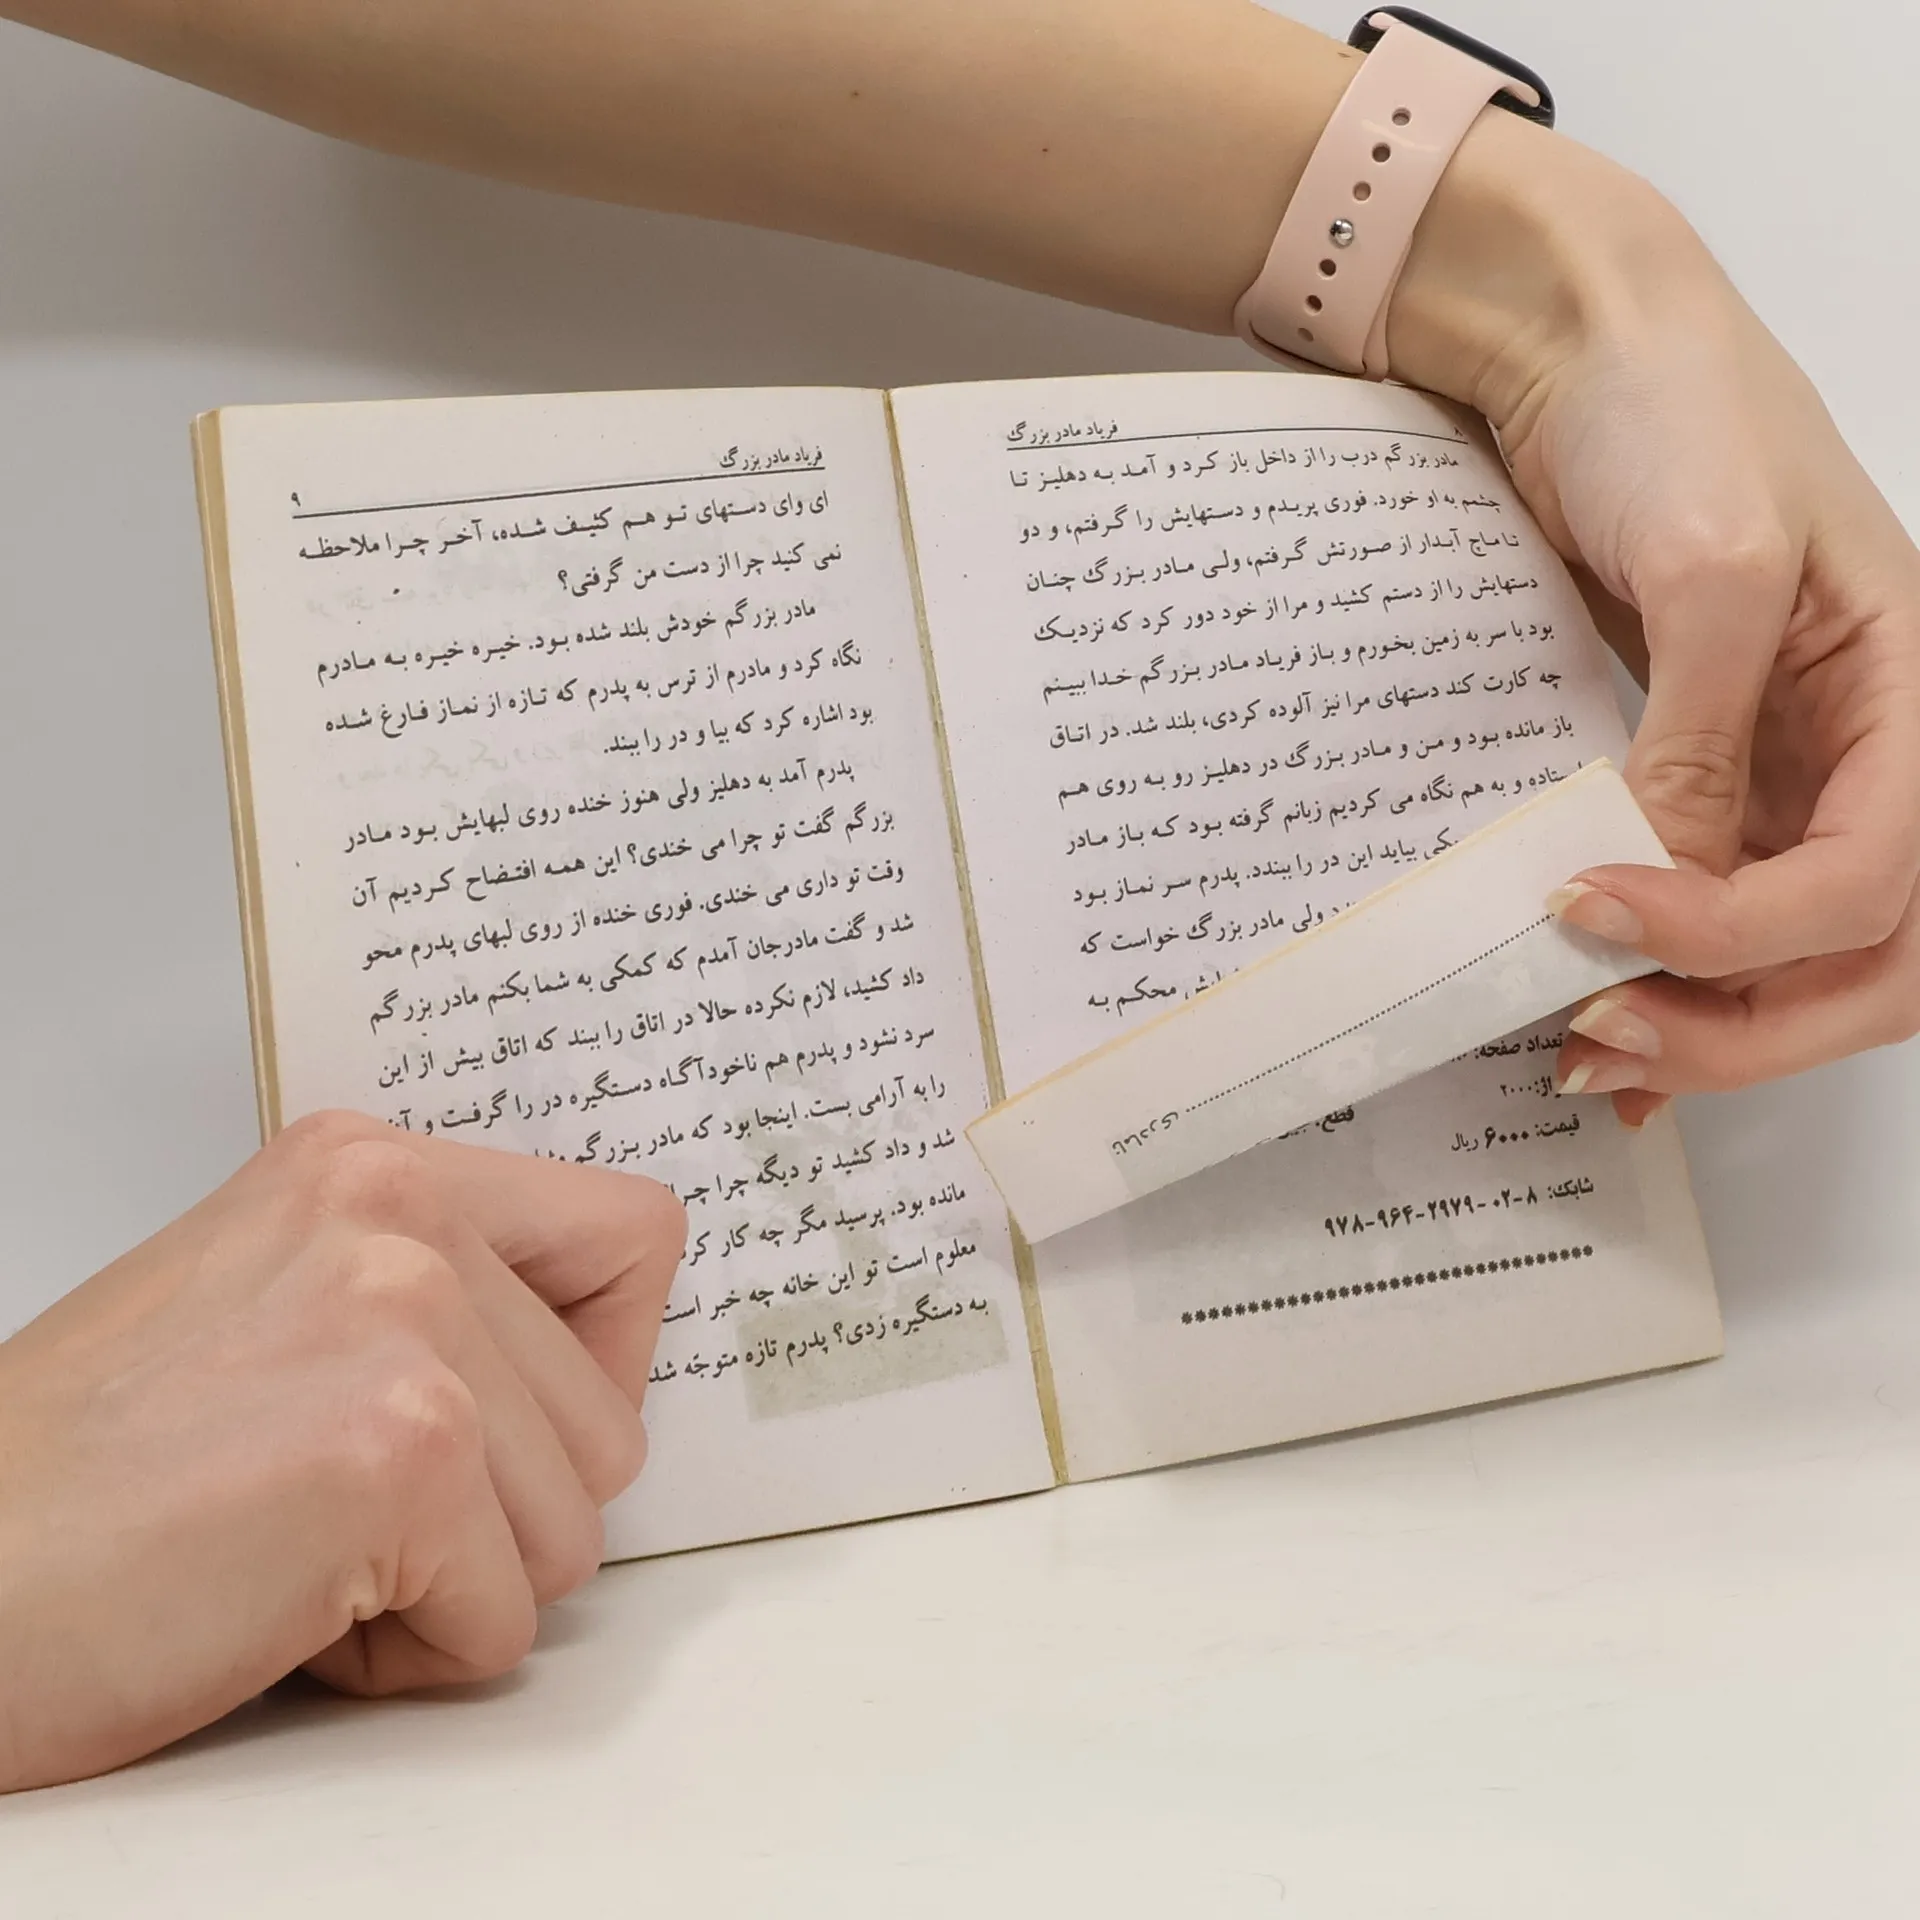 ۸
فریاد مادر بزرگ
مادر بزرگم درب را از داخل باز کرد و آمد به دهلیز تا
چشمم به او خورد. فوری پریدم و دستهایش را گرفتم، و دو
تا ماچ آبدار از صورتش گرفتم، ولی مادر بزرگ چنان
دستهایش را از دستم کشید و مرا از خود دور کرد که نزدیک
بود با سر به زمین بخورم و باز فریاد مادر بزرگم خدا ببینم
چه کارت کند دستهای مرا نیز آلوده کردی، بلند شد. در اتاق
باز مانده بود و من و مادر بزرگ در دهلیز رو به روی هم
و به هم نگاه می کردیم زبانم گرفته بود که باز مادر
بیاید این در را ببندد. پدرم سر نماز بود
ولی مادر بزرگ خواست که
محکم به
تعداد صفحه:
۲۰۰۰
قطع:
قیمت: ۶۰۰۰ ریال
شابک: ۸-۰۲-۲۹۷۹-۹۶۴-۹۷۸
فریاد مادر بزرگ
۹
ای وای دستهای تو هم کثیف شده، آخر چرا ملاحظه
نمی کنید چرا از دست من گرفتی؟
مادر بزرگم خودش بلند شده بود. خیره خیره به مادرم
نگاه کرد و مادرم از ترس به پدرم که تازه از نماز فارغ شده
بود اشاره کرد که بیا و در را ببند.
پدرم آمد به دهلیز ولی هنوز خنده روی لبهایش بود مادر
بزرگم گفت تو چرا می خندی؟ این همه افتضاح کردیم آن
وقت تو داری می خندی. فوری خنده از روی لبهای پدرم محو
شد و گفت مادرجان آمدم که کمکی به شما بکنم مادر بزرگم
داد کشید، لازم نکرده حالا در اتاق را ببند که اتاق بیش از این
سرد نشود و پدرم هم ناخودآگاه دستگیره در را گرفت و
را به آرامی بست. اینجا بود که مادر بزرگم
شد و داد کشید تو دیگه چرا
مانده بود. پرسید مگر چه کار
معلوم است تو این خانه چه خبر است
به دستگیره زدی؟ پدرم تازه متوجّه شد